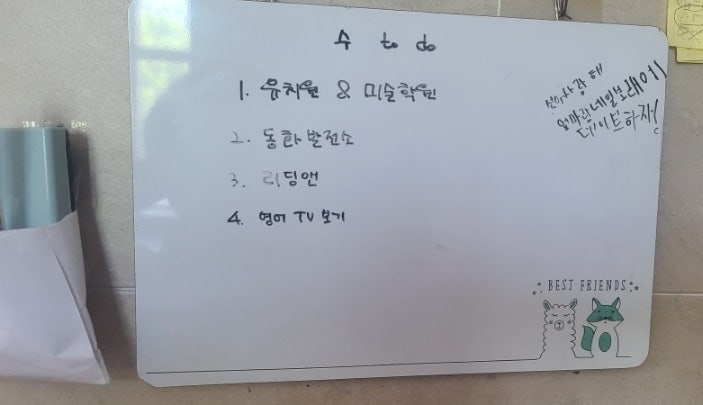 수 to do
1. 유치원 & 미술학원
2. 동화발전소
3. 리딩앤
4. 영어 TV 보기
사랑해
엄마랑 네일보래이
데이트하자!
BEST FRIENDS